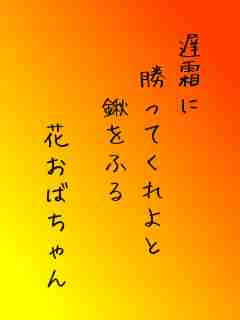 遅霜に
勝ってくれよと
鍬をふる
花おばちゃん